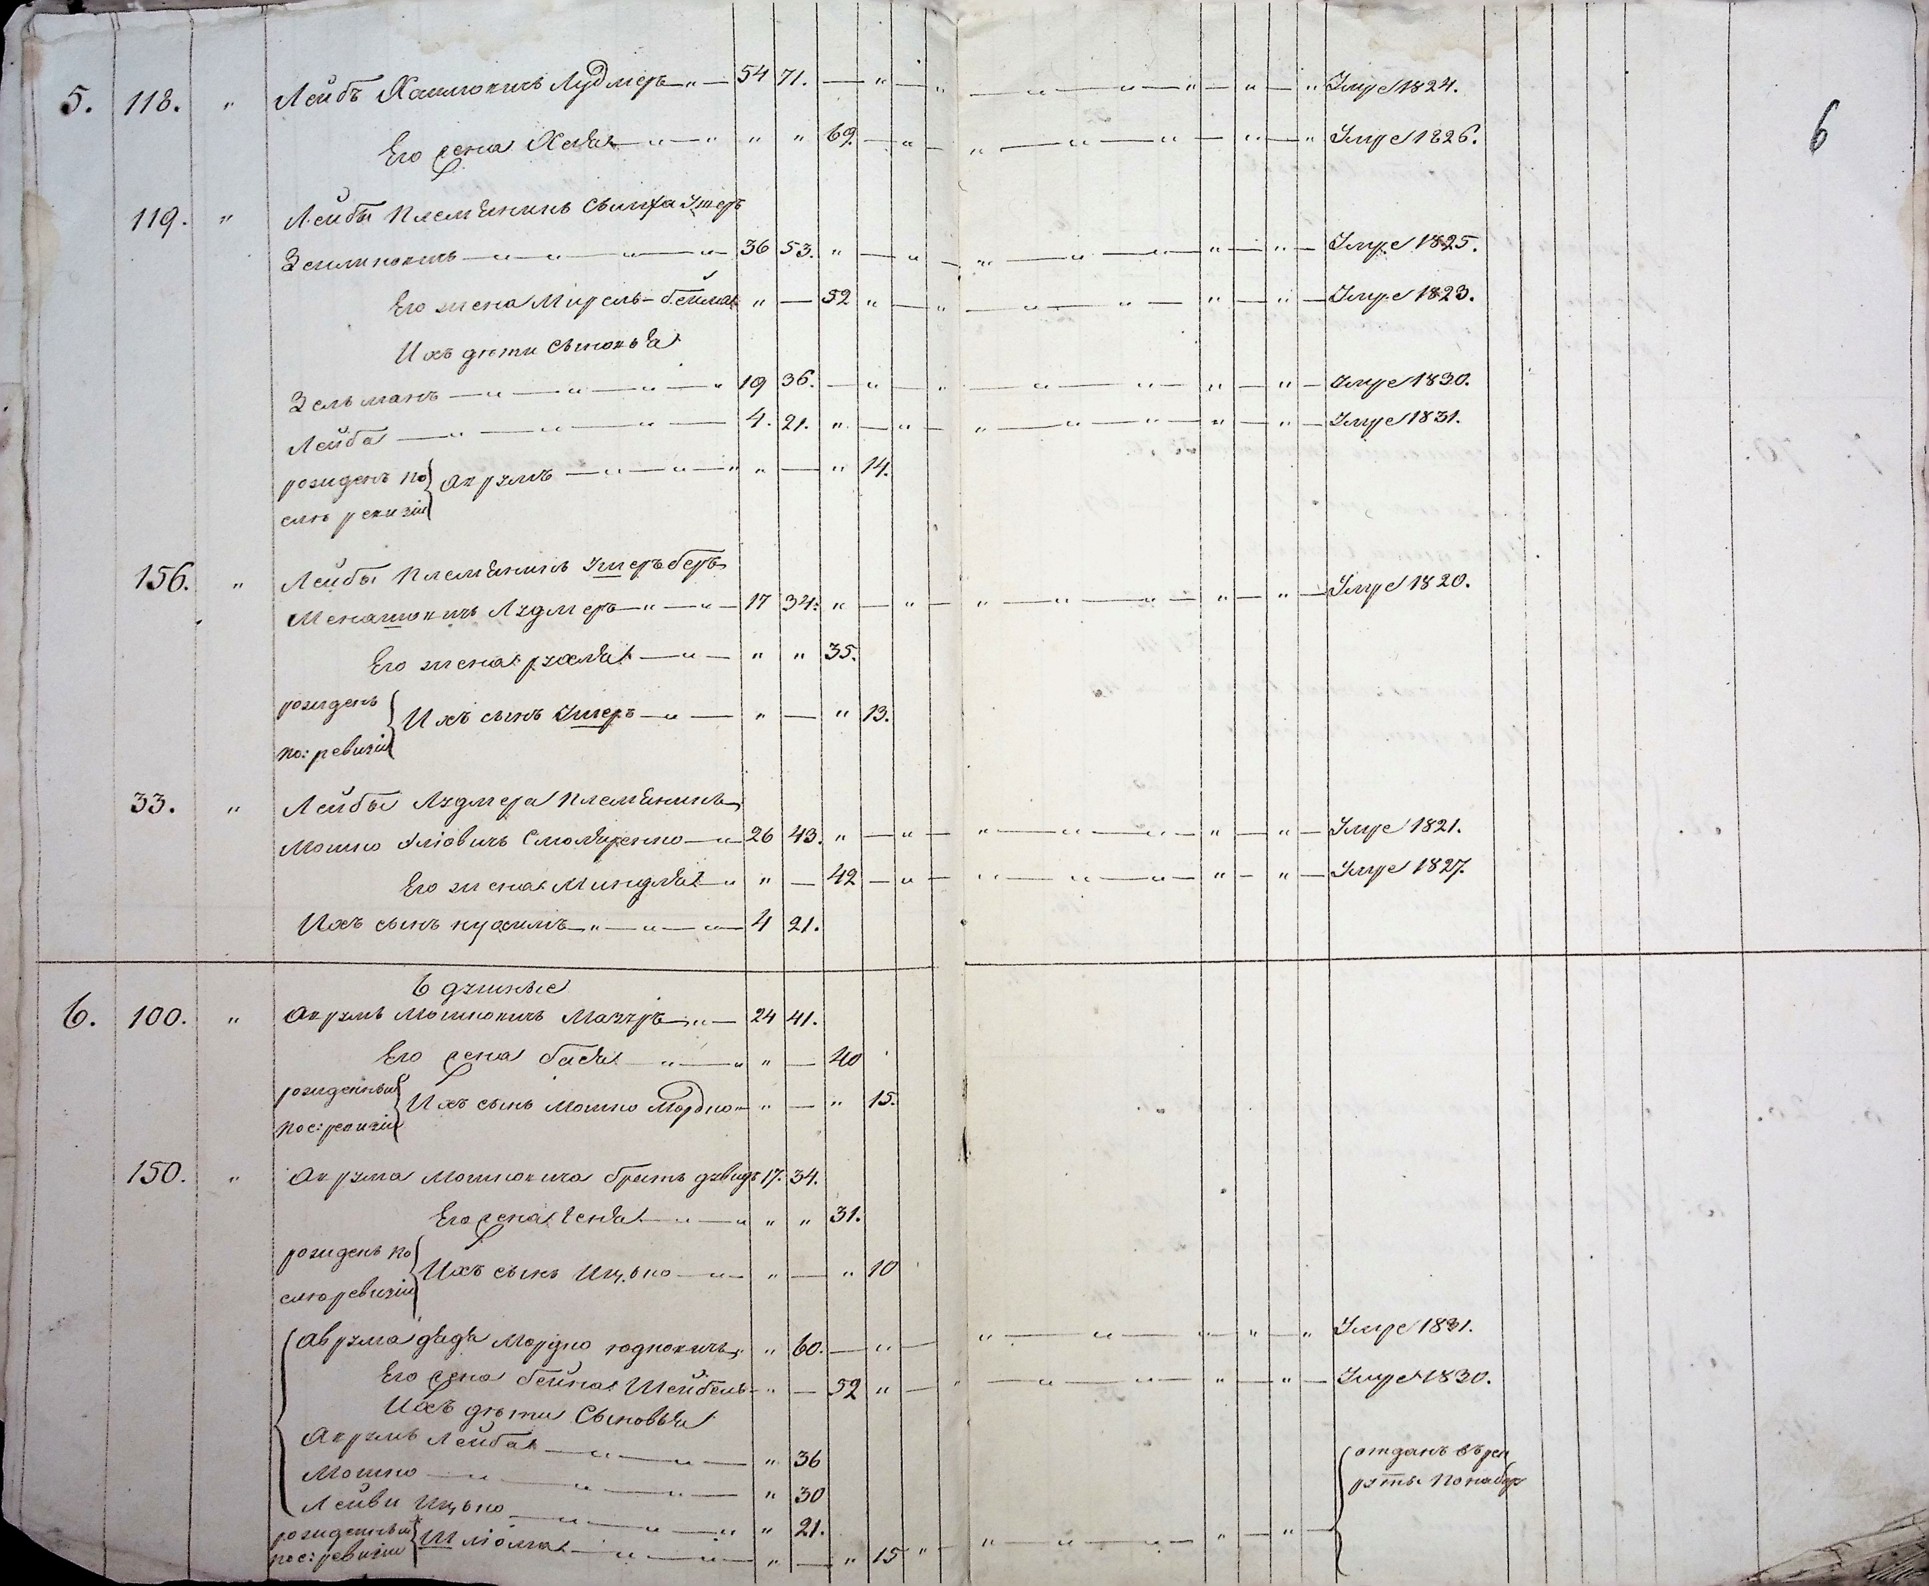 6
5. 118. " Лейбъ Хаимовичъ Лудмеръ 54 71. Умре 1824.
Его жена Хая 69. Умре 1826.
119. " Лейбы племяникъ Сымха Умеръ
Зельмановичъ 36 53. Умре 1825.
Его жена Мирель-бейла 52 Умре 1823.
Ихъ дети сыновья
Зельманъ 19 36. Умре 1830.
Лейба 4. 21. Умре 1831.
рожденъ по
слѣ ревизіи
Аврумъ 14.
156. " Лейбы племяникъ Умеръ беръ
Менашовичъ Лудмеръ 17 34. Умре 1820.
Его жена рухля 35.
рожденъ
по: ревизіи
Ихъ сынъ Умеръ 13.
33. " Лейбы Лудмера племяникъ
Мошко Уліовичъ Смоляренко 26 43. Умре 1821.
Его жена Миндля 42 Умре 1827.
Ихъ сынъ нухимъ 4 21.
Едукые
6. 100. " Аврумъ Мошковичъ Мазуръ 24 41.
Его жена бася 40
рожденный
пос: ревизіи
Ихъ сынъ Мошко Мордко 15.
150. " Аврума Мошковича братъ дувидъ 17. 34.
Его жена Геня 31.
рожденъ по
слѣ ревизіи
Ихъ сынъ Ицько 10
Аврума дядя Мордко юдковичъ 60. Умре 1831.
Его жена бейла Шейбель 52 Умре 1830.
Ихъ дѣти Сыновья
Аврумъ Лейба 36
Мошко 30
Лейви Ицько 21.
отданъ въ рек
руты по набор
рожденный
пос: ревизіи
Шліома 15